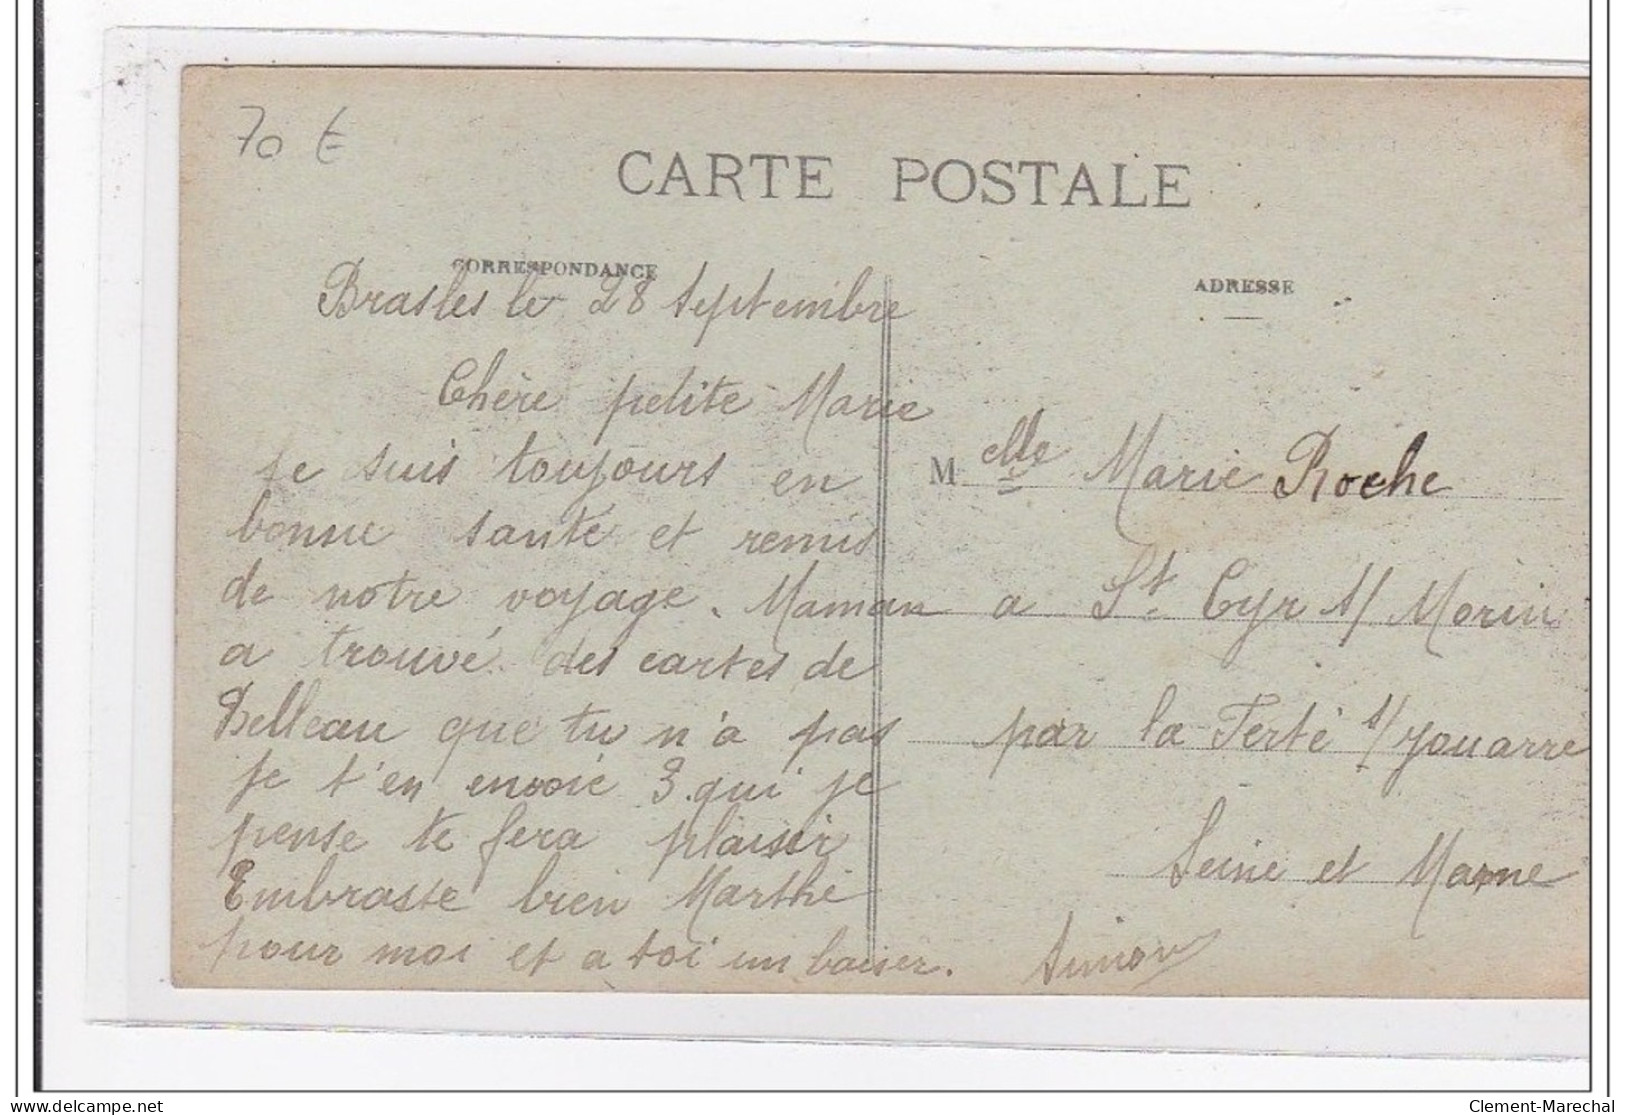 70 €
CARTE POSTALE
CORRESPONDANCE
Brasles le 28 Septembre
Chère petite Marie
je suis toujours en
bonne santé et remis
de notre voyage. Maman
a trouvé des cartes de
Belleau que tu n'a pas
je t'en envoie 3 qui je
pense te fera plaisir
Embrasse bien Marthe
pour moi et a toi un baiser.
Simon
ADRESSE
Melle Marie Roche
a St. Cyr s/ Morin
par la Ferté s/ Jouarre
Seine et Marne
delcampe.net
Clement-Marechal